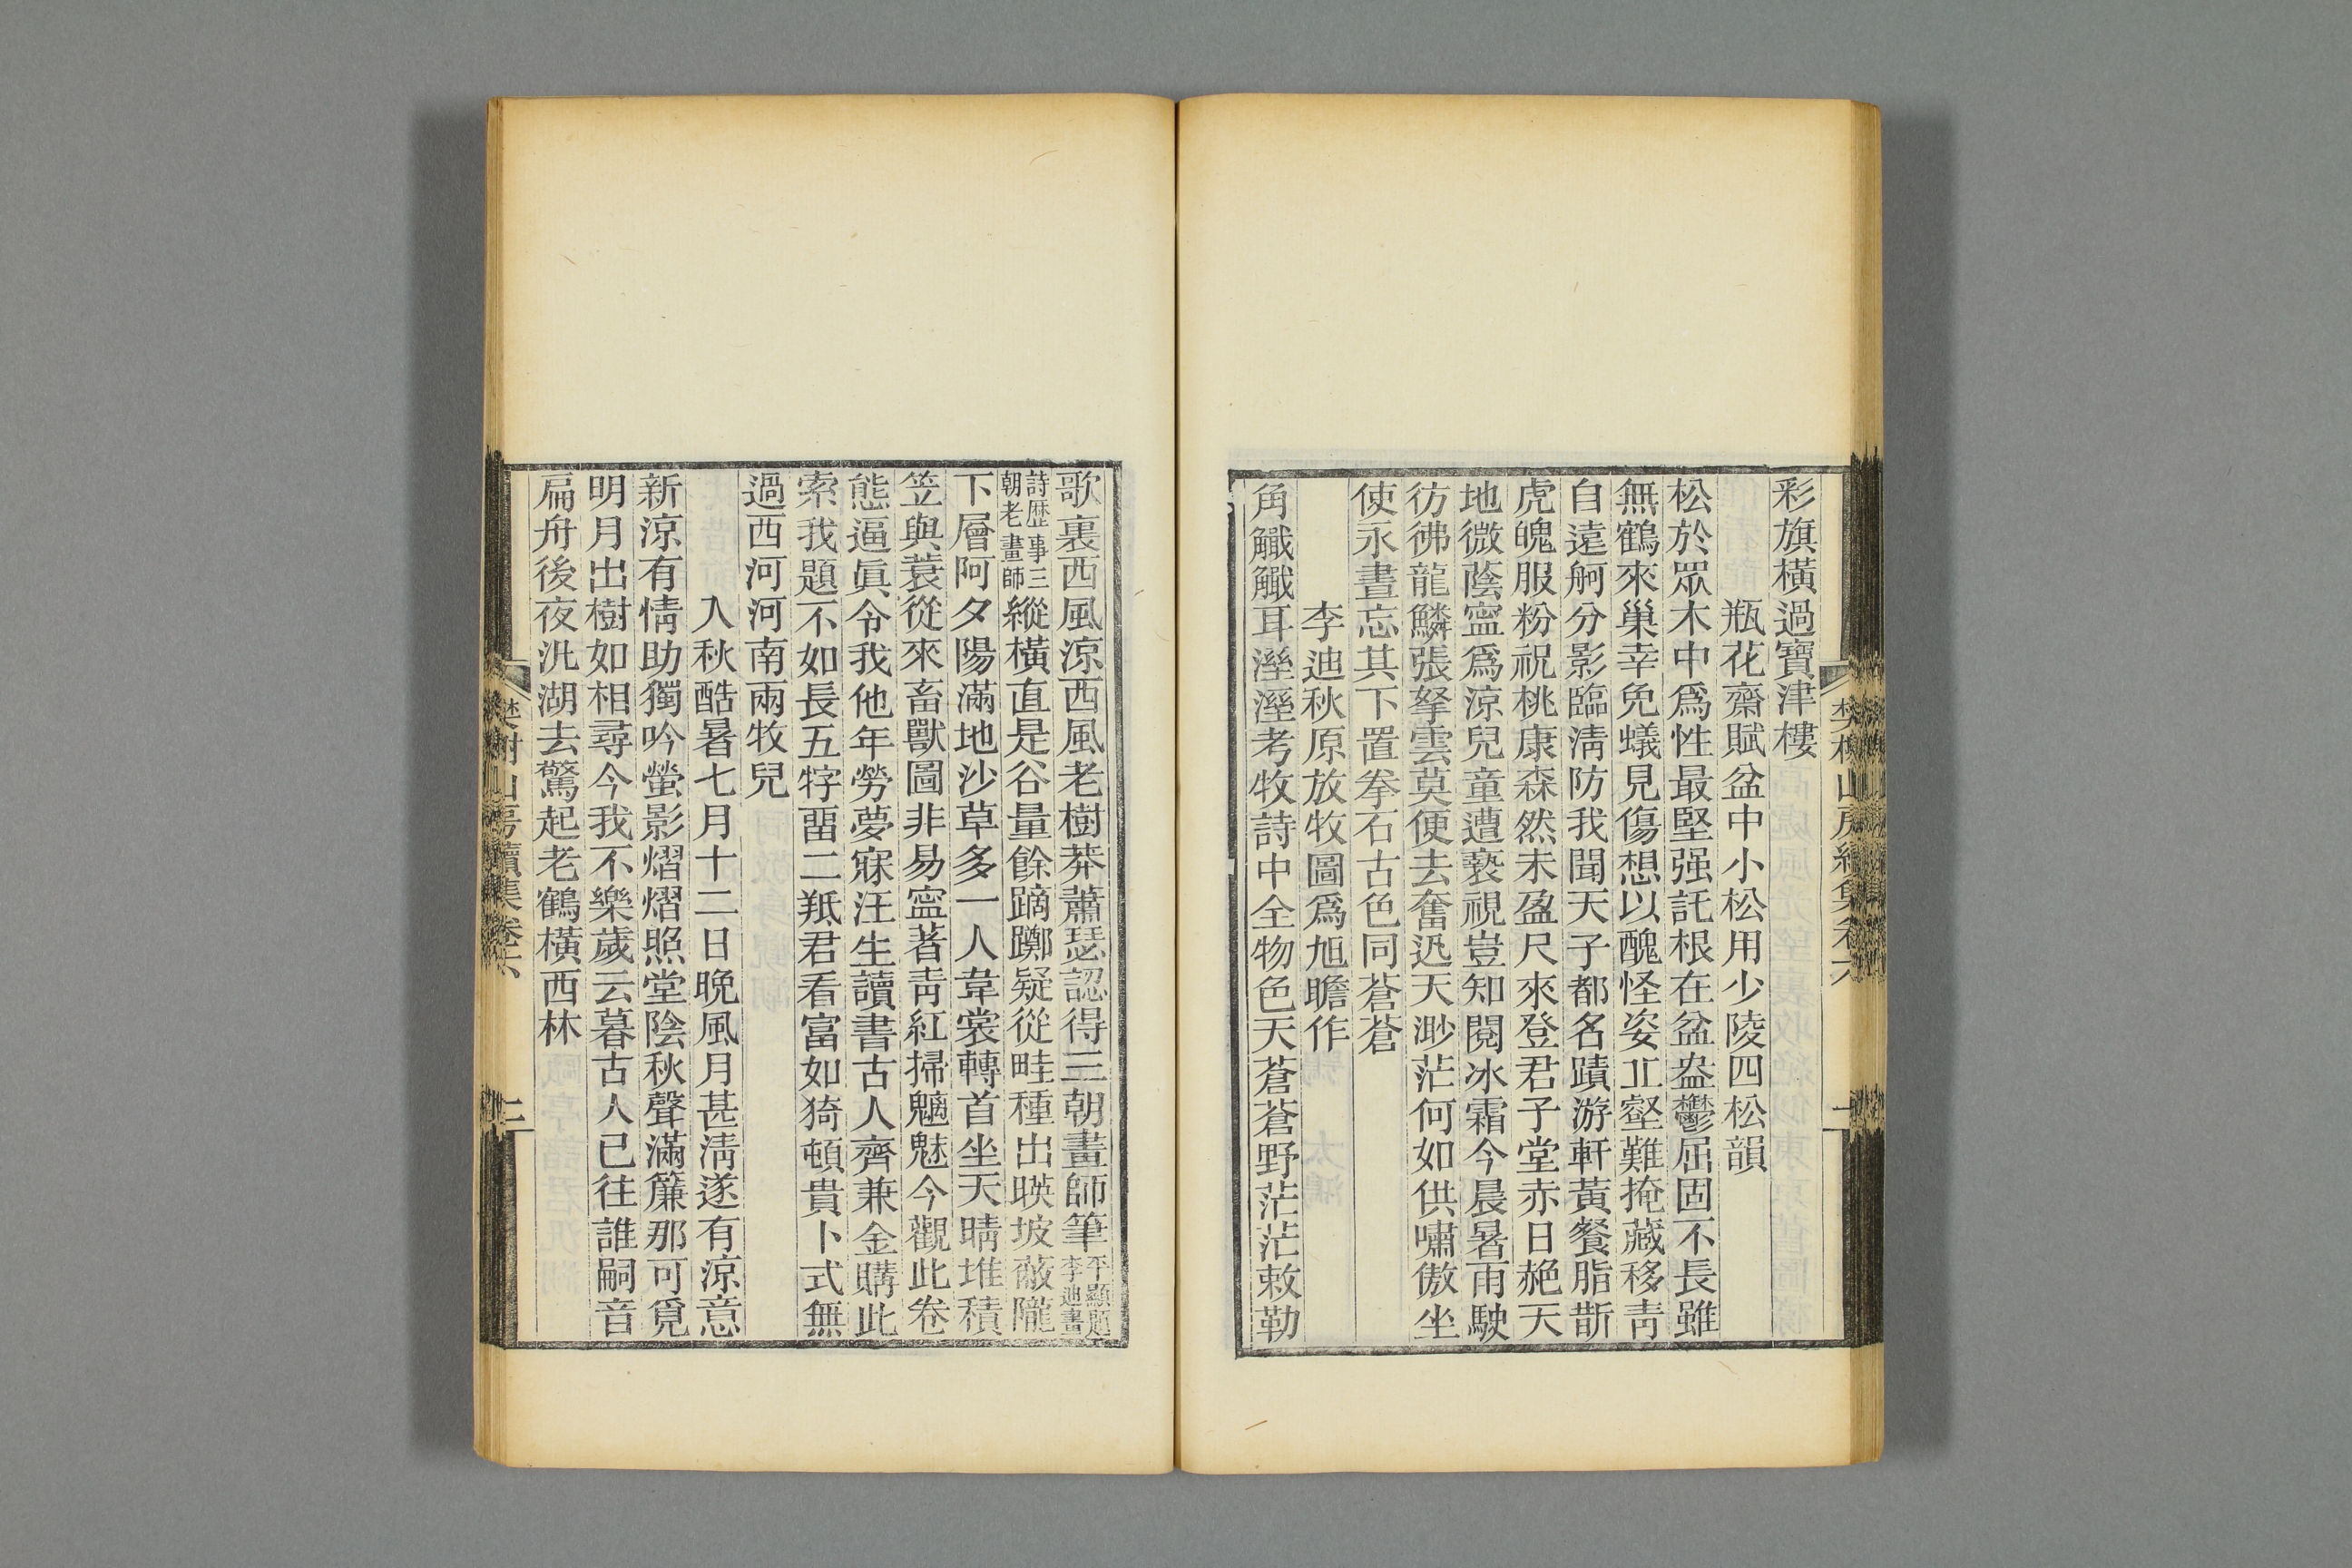 彩旗橫過寶津樓
瓶花齋賦盆中小松用少陵四松韻
松於眾木中爲性最堅强託根在盆盎鬱屈固不長雖
無鶴來巢幸免蟻見傷想以醜怪姿丘壑難掩藏移靑
自遠舸分影臨淸防我聞天子都名蹟游軒黃餐脂斮
虎魄服粉祝桃康森然未盈尺來登君子堂赤日赩天
地微蔭寍爲涼兒童遭褻視豈知閱冰霜今晨暑雨駛
彷彿龍鱗張拏雲莫便去奮迅天渺茫何如供嘯傲坐
使永晝忘其下置拳石古色同蒼蒼
李迪秋原放牧圖爲旭瞻作
角觿觿耳溼溼考牧詩中全物色天蒼蒼野茫茫敕勒
樊榭山房續集卷六
歌裏西風涼西風老樹莽蕭瑟認得三朝畫師筆平顯題李迪畫
詩歷事三朝老畫師縱橫直是谷量餘蹢躑疑從畦種出暎坡蔽隴
下層阿夕陽滿地沙草多一人韋裳轉首坐天晴堆積
笠與蓑從來畜獸圖非易寍著靑紅掃魑魅今觀此卷
態逼眞令我他年勞夢寐汪生讀書古人齊兼金購此
索我題不如長五牸畱二羝君看富如猗頓貴卜式無
過西河河南兩牧兒
入秋酷暑七月十二日晚風月甚淸遂有涼意
新涼有情助獨吟螢影熠熠照堂陰秋聲滿簾那可覓
明月出樹如相尋今我不樂歲云暮古人已往誰嗣音
扁舟後夜汎湖去驚起老鶴橫西林
樊榭山房續集卷六